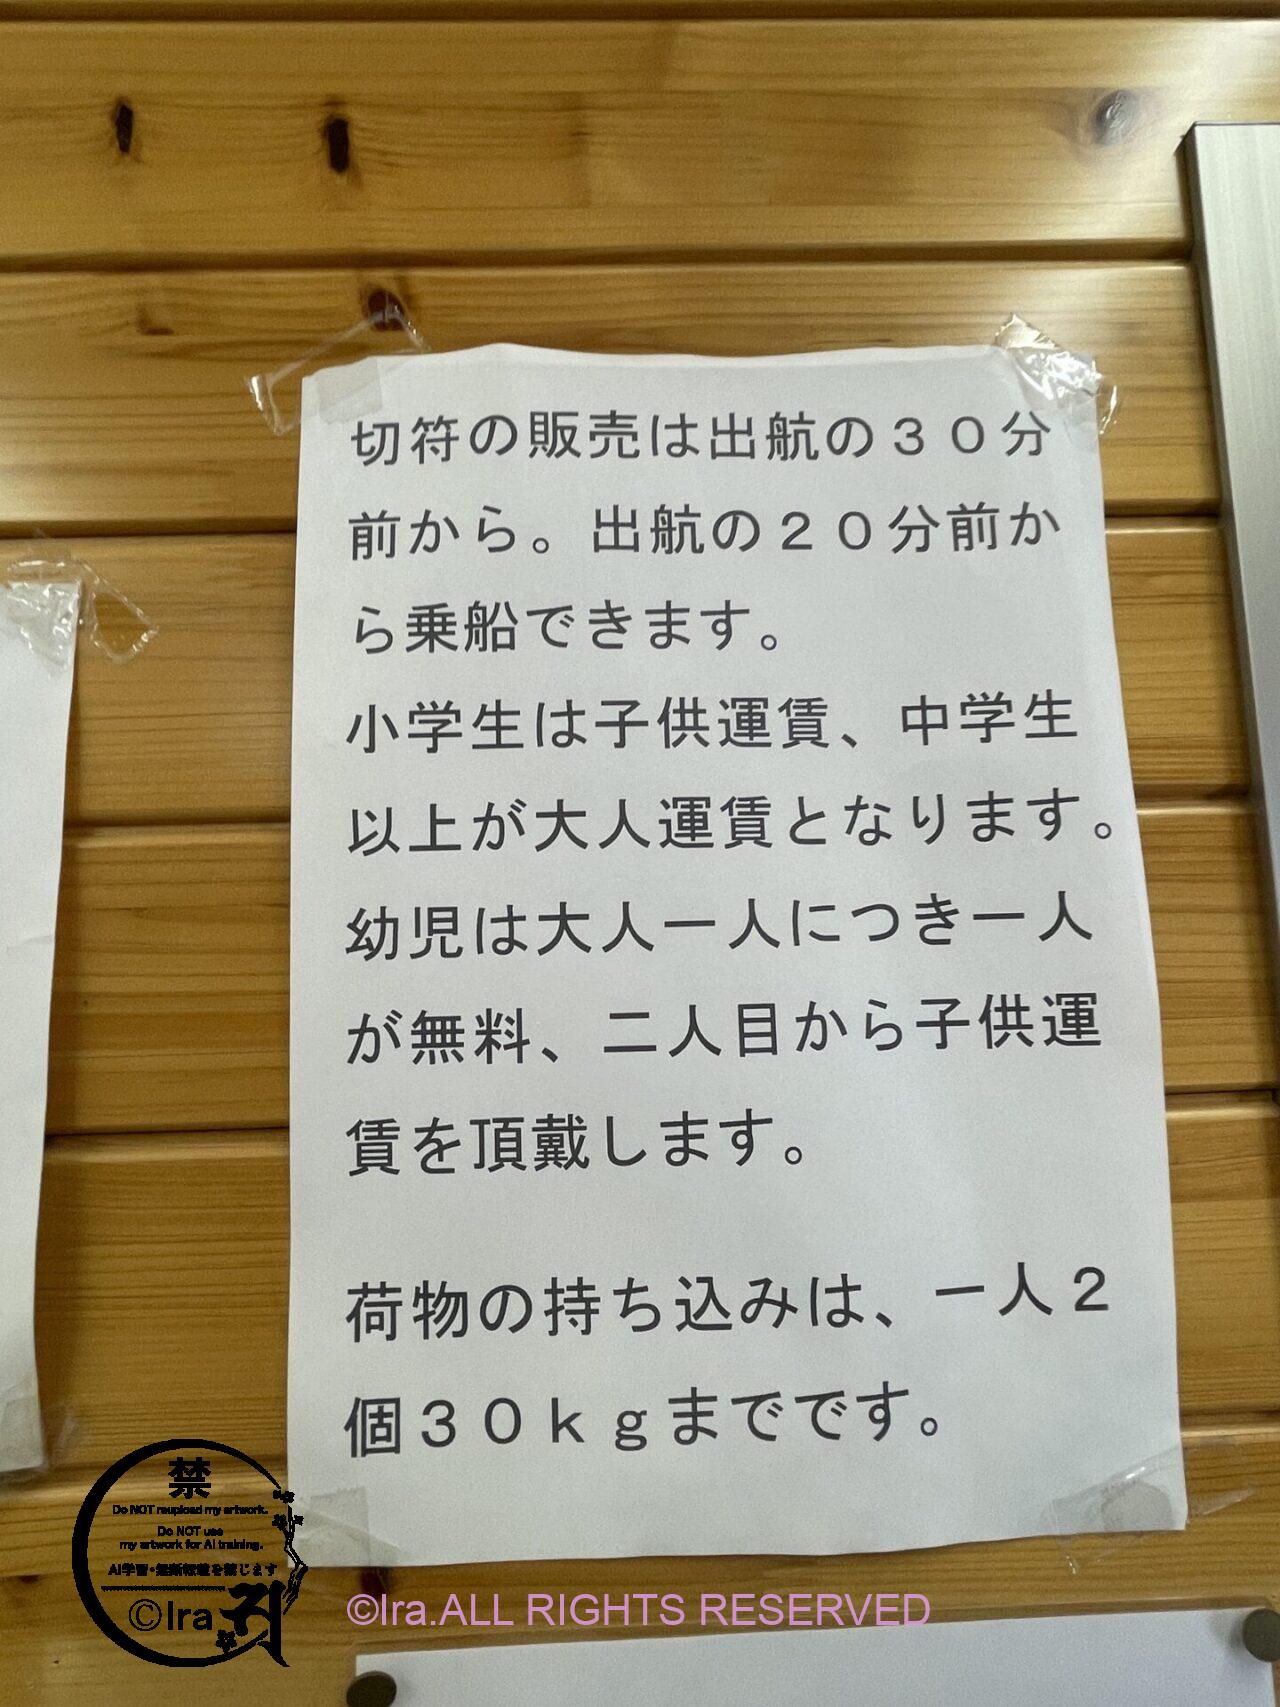 切符の販売は出航の３０分
前から。出航の２０分前か
ら乗船できます。
小学生は子供運賃、中学生
以上が大人運賃となります。
幼児は大人一人につき一人
が無料、二人目から子供運
賃を頂戴します。
荷物の持ち込みは、一人２
個３０ｋｇまでです。
禁
Do NOT reupload my artwork.
Do NOT use
my artwork for AI training.
AI学習・無断転載を禁じます
©Ira
©Ira.ALL RIGHTS RESERVED